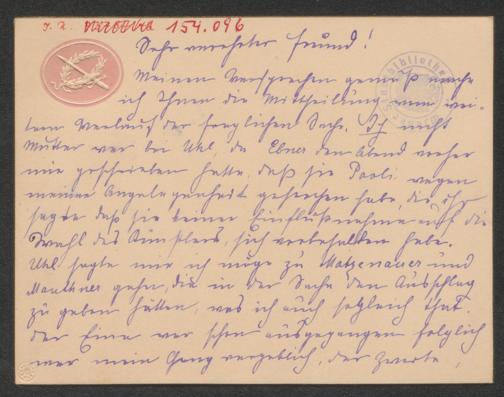 J. N. 154.096
Sehr verehrter Freund!
Meinem Versprechen gemäß mache
ich Ihnen die Mittheilung vom wei-
tern Verlauf der fraglichen Sache. nicht
Mutter war bei Uhl, da Ebner den Abend vorher
mir geschrieben hatte, daß sie Paoli wegen
meiner Angelegenheit gesprochen habe, die ihr
sagte daß sie keinen Einflußnahme auf die
Wahl des Künstlers, sich vorbehalten habe.
Uhl sagte mir ich möge zu Matzenauer und
Mauthner gehen, die in der Sache den Ausschlag
zu geben hätten, was ich auch sogleich that.
Der Eine war schon ausgegangen folglich
war mein Gang vergeblich, der zweite,